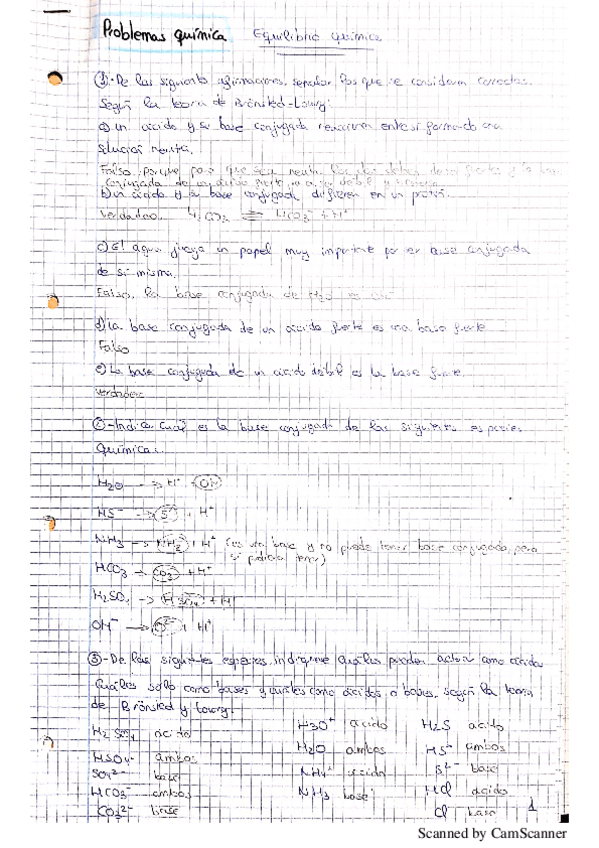 Problemas química Equilibrio químico
①-De las siguiente afirmaciones, señalar las que se consideran correctas.
Según la teoría de Brönsted-Lowry:
a) Un ácido y su base conjugada reaccionan entre sí formando una
solución neutra.
Falso, porque para que sea neutra los dos deben de ser fuertes y la base
conjugada de un ácido fuerte
b) Un ácido y su base conjugada difieren en un protón.
Verdadero. H2CO3 ⇌ HCO3⁻ + H⁺
c) El agua juega un papel muy importante por ser base conjugada
de sí misma.
Falso, la base conjugada de H2O es OH⁻
d) La base conjugada de un ácido fuerte es una base fuerte
Falso
e) La base conjugada de un ácido débil es la base fuerte.
Verdadero
②-Indica cuál es la base conjugada de las siguientes especies
químicas.
H2O → H⁺ + OH⁻
HS⁻ → S²⁻ + H⁺
NH3 → NH2⁻ + H⁺ (es una base y no puede tener base conjugada, pero
si pidiera tener)
HCO3 → CO3 + H⁺
H2SO4 → HSO4⁻ + H
OH⁻ → O²⁻ + H⁺
③-De las siguientes especies, indique cuáles pueden actuar como ácidos
cuáles sólo como bases y cuáles como ácidos o bases, según la teoría
de Brönsted y Lowry.
H2SO4 ácido H3O⁺ ácido H2S ácido
HSO4⁻ ambos H2O ambos HS⁻ ambos
SO4²⁻ base NH4⁺ ácido S²⁻ base
HCO3⁻ ambos NH3 base HCl ácido
CO3²⁻ base Cl⁻ base 1
Scanned by CamScanner